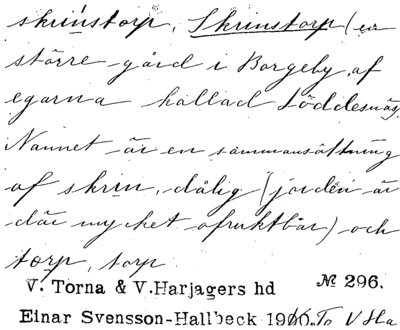 skrinstorp, Skrinstorp (en
större gård i Borgeby, af
egarna kallad Löddesnäs.
Namnet är en sammansättning
af skrin, dålig (jorden är
där mycket ofruktbar) och
torp, torp
V. Torna & V.Harjagers hd № 296.
Einar Svensson-Hallbeck 1906. To V Ha